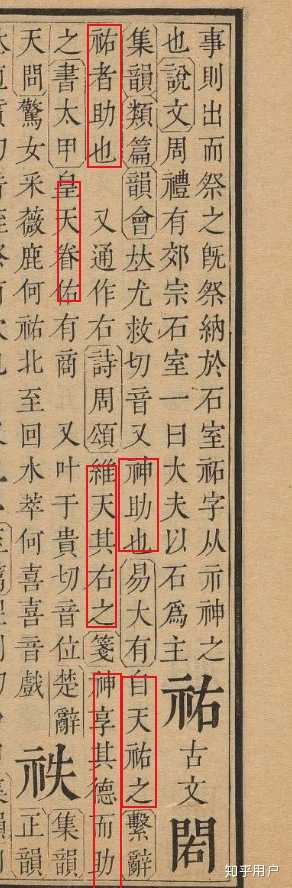 事則出而祭之旣祭納於石室祏字从示神之
也說文周禮有郊宗石室一曰大夫以石爲主
祐 古文
集韻類篇韻會𠀤尤救切音又神助也易大有自天祐之繫辭
祐者助也 又通作右詩周頌維天其右之箋神享其德而助
之書太甲皇天眷佑有商 又叶于貴切音位楚辭
天問驚女采薇鹿何祐北至回水萃何喜喜音戲
祑
集韻
正韻
知乎用户